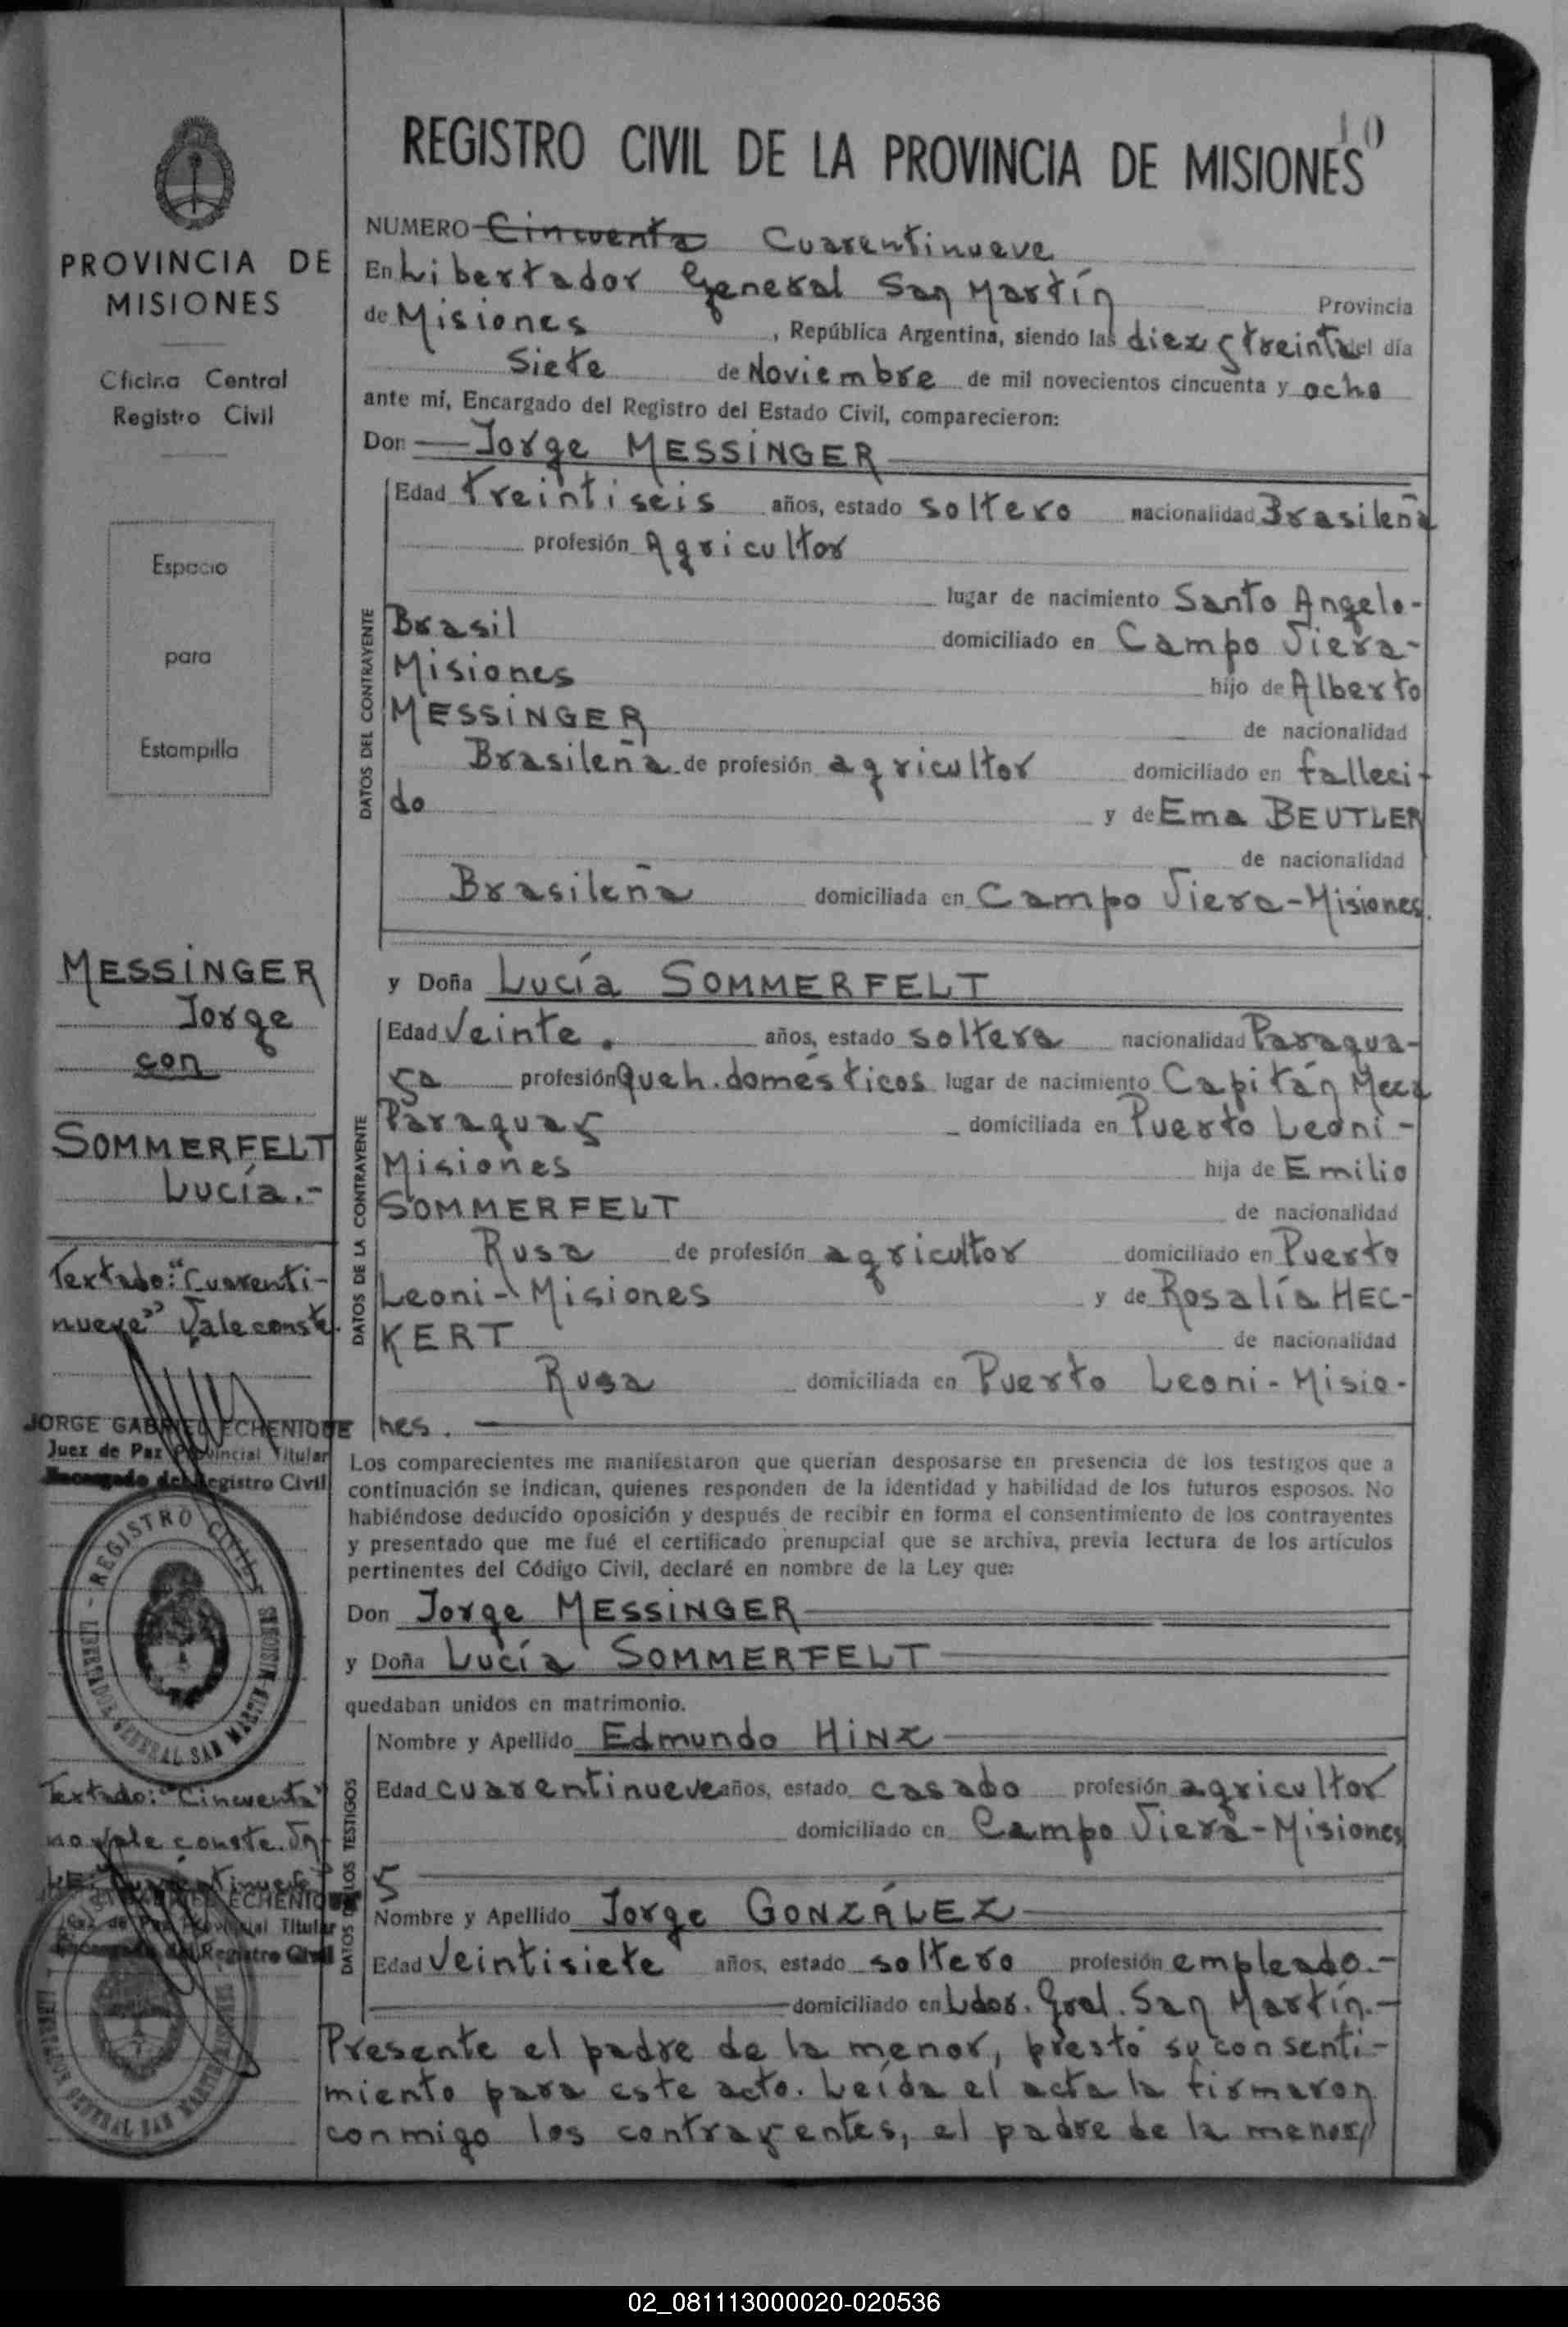 10
REGISTRO CIVIL DE LA PROVINCIA DE MISIONES
PROVINCIA DE
MISIONES
Oficina Central
Registro Civil
Espacio
para
Estampilla
MESSINGER
Jorge
con
SOMMERFELT
Lucía.-
Textado: "Cuarenti-
nueve" Vale conste.
JORGE GABRIEL ECHENIQUE
Juez de Paz Provincial Titular
Encargado del Registro Civil
REGISTRO CIVIL
LIBERTADOR GENERAL SAN MARTIN MISIONES
Textado: "Cincuenta"
no vale conste.
ECHENIQUE
Juez de Paz Provincial Titular
Encargado del Registro Civil
NUMERO Cincuenta Cuarentinueve
En Libertador General San Martín Provincia
de Misiones, República Argentina, siendo las diez y treinta del día
Siete de Noviembre de mil novecientos cincuenta y ocho
ante mí, Encargado del Registro del Estado Civil, comparecieron:
Don Jorge MESSINGER
DATOS DEL CONTRAYENTE
Edad treintiseis años, estado soltero nacionalidad Brasileña
profesión Agricultor
lugar de nacimiento Santo Angelo-
Brasil domiciliado en Campo Viera-
Misiones hijo de Alberto
MESSINGER de nacionalidad
Brasileña de profesión agricultor domiciliado en falleci-
do y de Ema BEUTLER
de nacionalidad
Brasileña domiciliada en Campo Viera-Misiones.
y Doña Lucía SOMMERFELT
DATOS DE LA CONTRAYENTE
Edad Veinte. años, estado soltera nacionalidad Paragua-
ya profesión Queh. domésticos lugar de nacimiento Capitán Meza
Paraguay domiciliada en Puerto Leoni-
Misiones hija de Emilio
SOMMERFELT de nacionalidad
Rusa de profesión agricultor domiciliado en Puerto
Leoni-Misiones y de Rosalía HEC-
KERT de nacionalidad
Rusa domiciliada en Puerto Leoni-Misio-
nes.
Los comparecientes me manifestaron que querían desposarse en presencia de los testigos que a
continuación se indican, quienes responden de la identidad y habilidad de los futuros esposos. No
habiéndose deducido oposición y después de recibir en forma el consentimiento de los contrayentes
y presentado que me fué el certificado prenupcial que se archiva, previa lectura de los artículos
pertinentes del Código Civil, declaré en nombre de la Ley que:
Don Jorge MESSINGER
y Doña Lucía SOMMERFELT
quedaban unidos en matrimonio.
DATOS DE LOS TESTIGOS
Nombre y Apellido Edmundo HINZ
Edad cuarentinueve años, estado casado profesión agricultor
domiciliado en Campo Viera-Misiones
y
Nombre y Apellido Jorge GONZÁLEZ
Edad Veintisiete años, estado soltero profesión empleado.-
domiciliado en Ldor. Gral. San Martín.-
Presente el padre de la menor, prestó su consenti-
miento para este acto. Leída el acta la firmaron
conmigo los contrayentes, el padre de la menor,
02_081113000020-020536